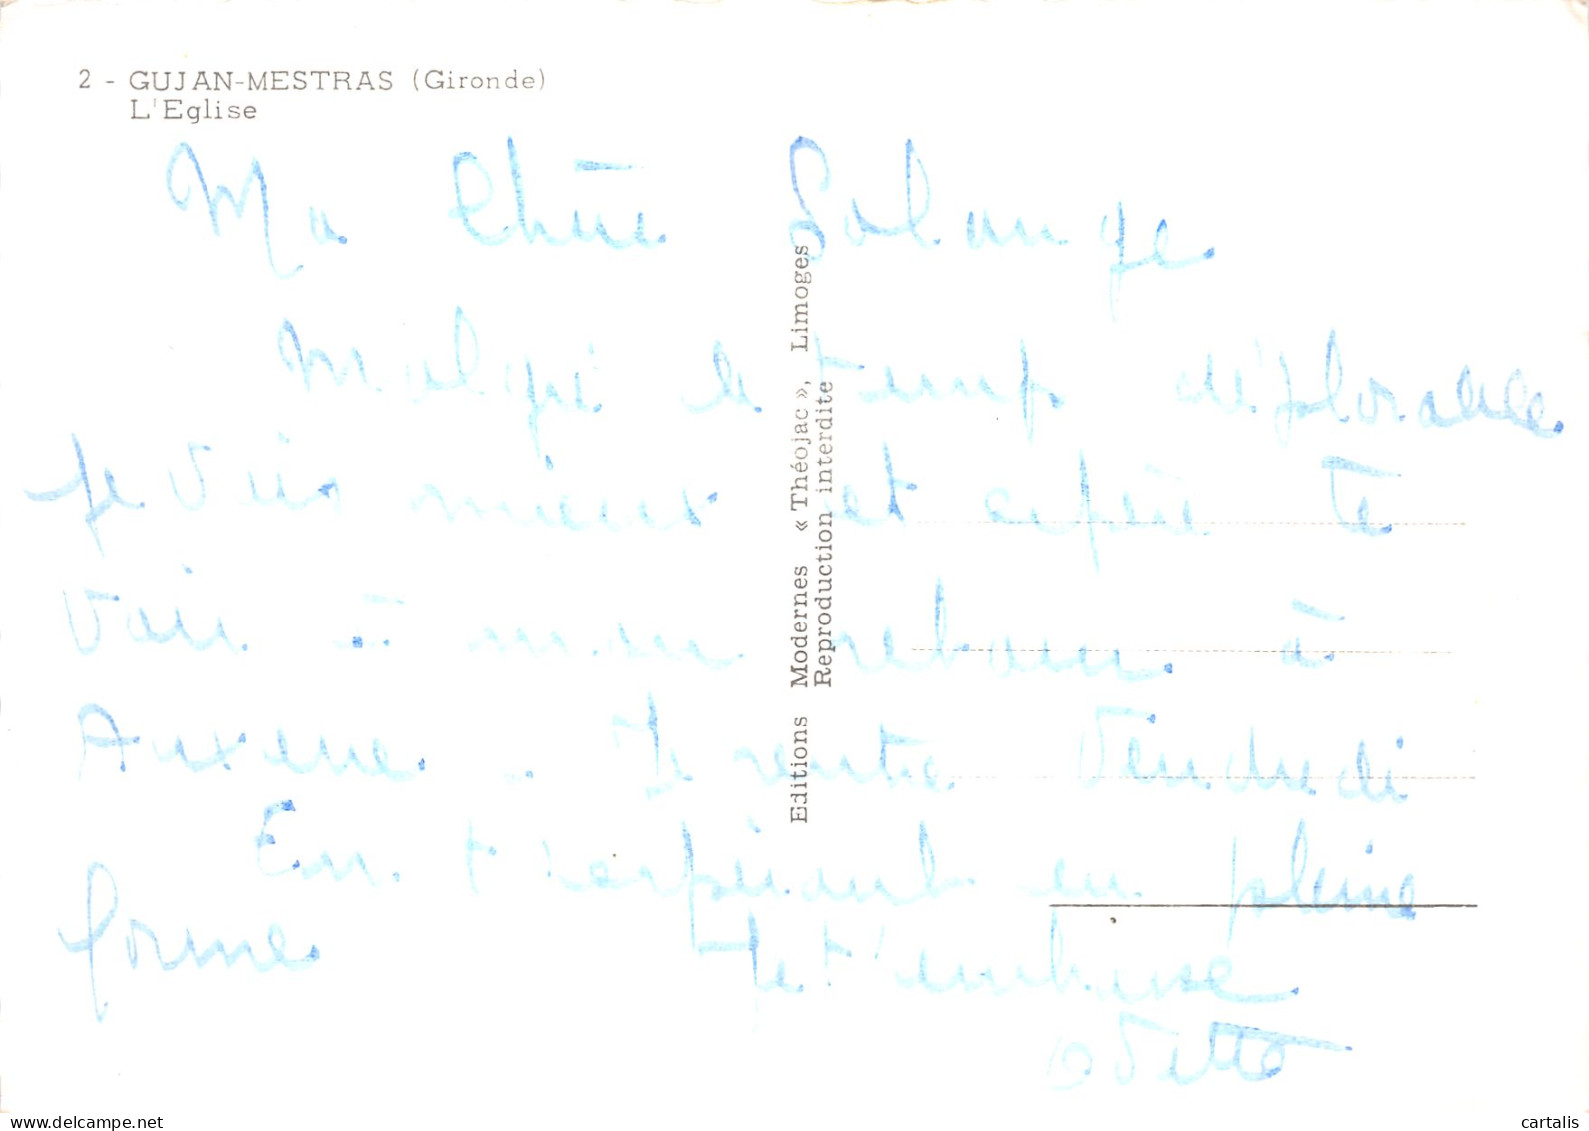 2 - GUJAN-MESTRAS (Gironde)
L'Eglise
Ma Chère Solange
Malgré le temps déplorable
je vais mieux et espère te
voir à mon retour à
Auxerre. Je rentre Vendredi
En t'espérant en pleine
forme Je t'embrasse
Odette
Editions Modernes « Théojac », Limoges
Reproduction interdite
www.delcampe.net
cartalis